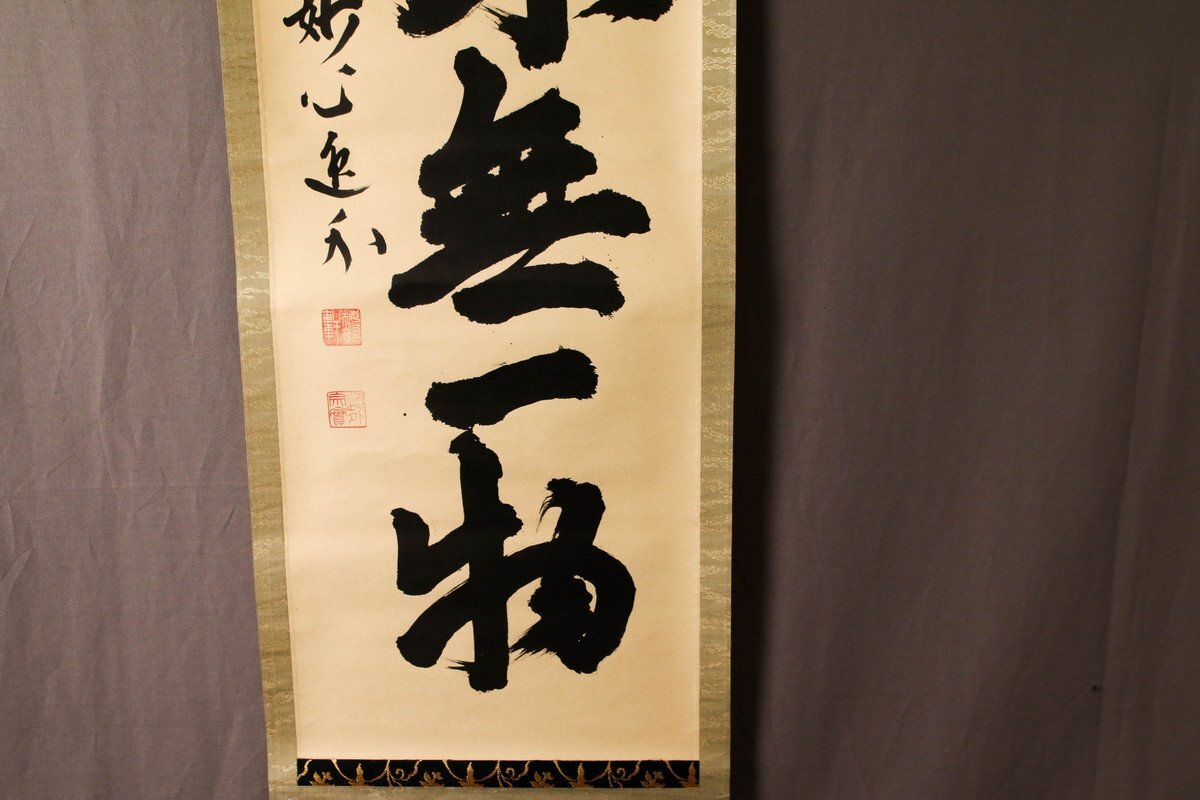 無一物
妙心逸外